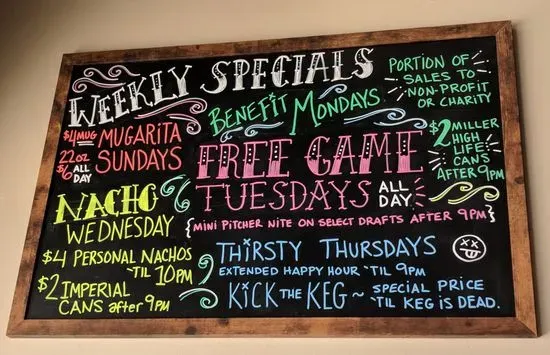 WEEKLY SPECIALS
$4 MUG MUGARITA
22oz SUNDAYS
$6 ALL
DAY
BENEFIT MONDAYS
PORTION OF
SALES TO
NON-PROFIT
OR CHARITY
FREE GAME
TUESDAYS ALL
DAY
MINI PITCHER NITE ON SELECT DRAFTS AFTER 9PM
$2 MILLER
HIGH
LIFE
CANS
AFTER 9PM
NACHO
WEDNESDAY
$4 PERSONAL NACHOS
'TIL 10PM
$2 IMPERIAL
CANS after 9PM
THIRSTY THURSDAYS
EXTENDED HAPPY HOUR 'TIL 9PM
KiCK THE KEG ~ SPECIAL PRICE
'TIL KEG iS DEAD.